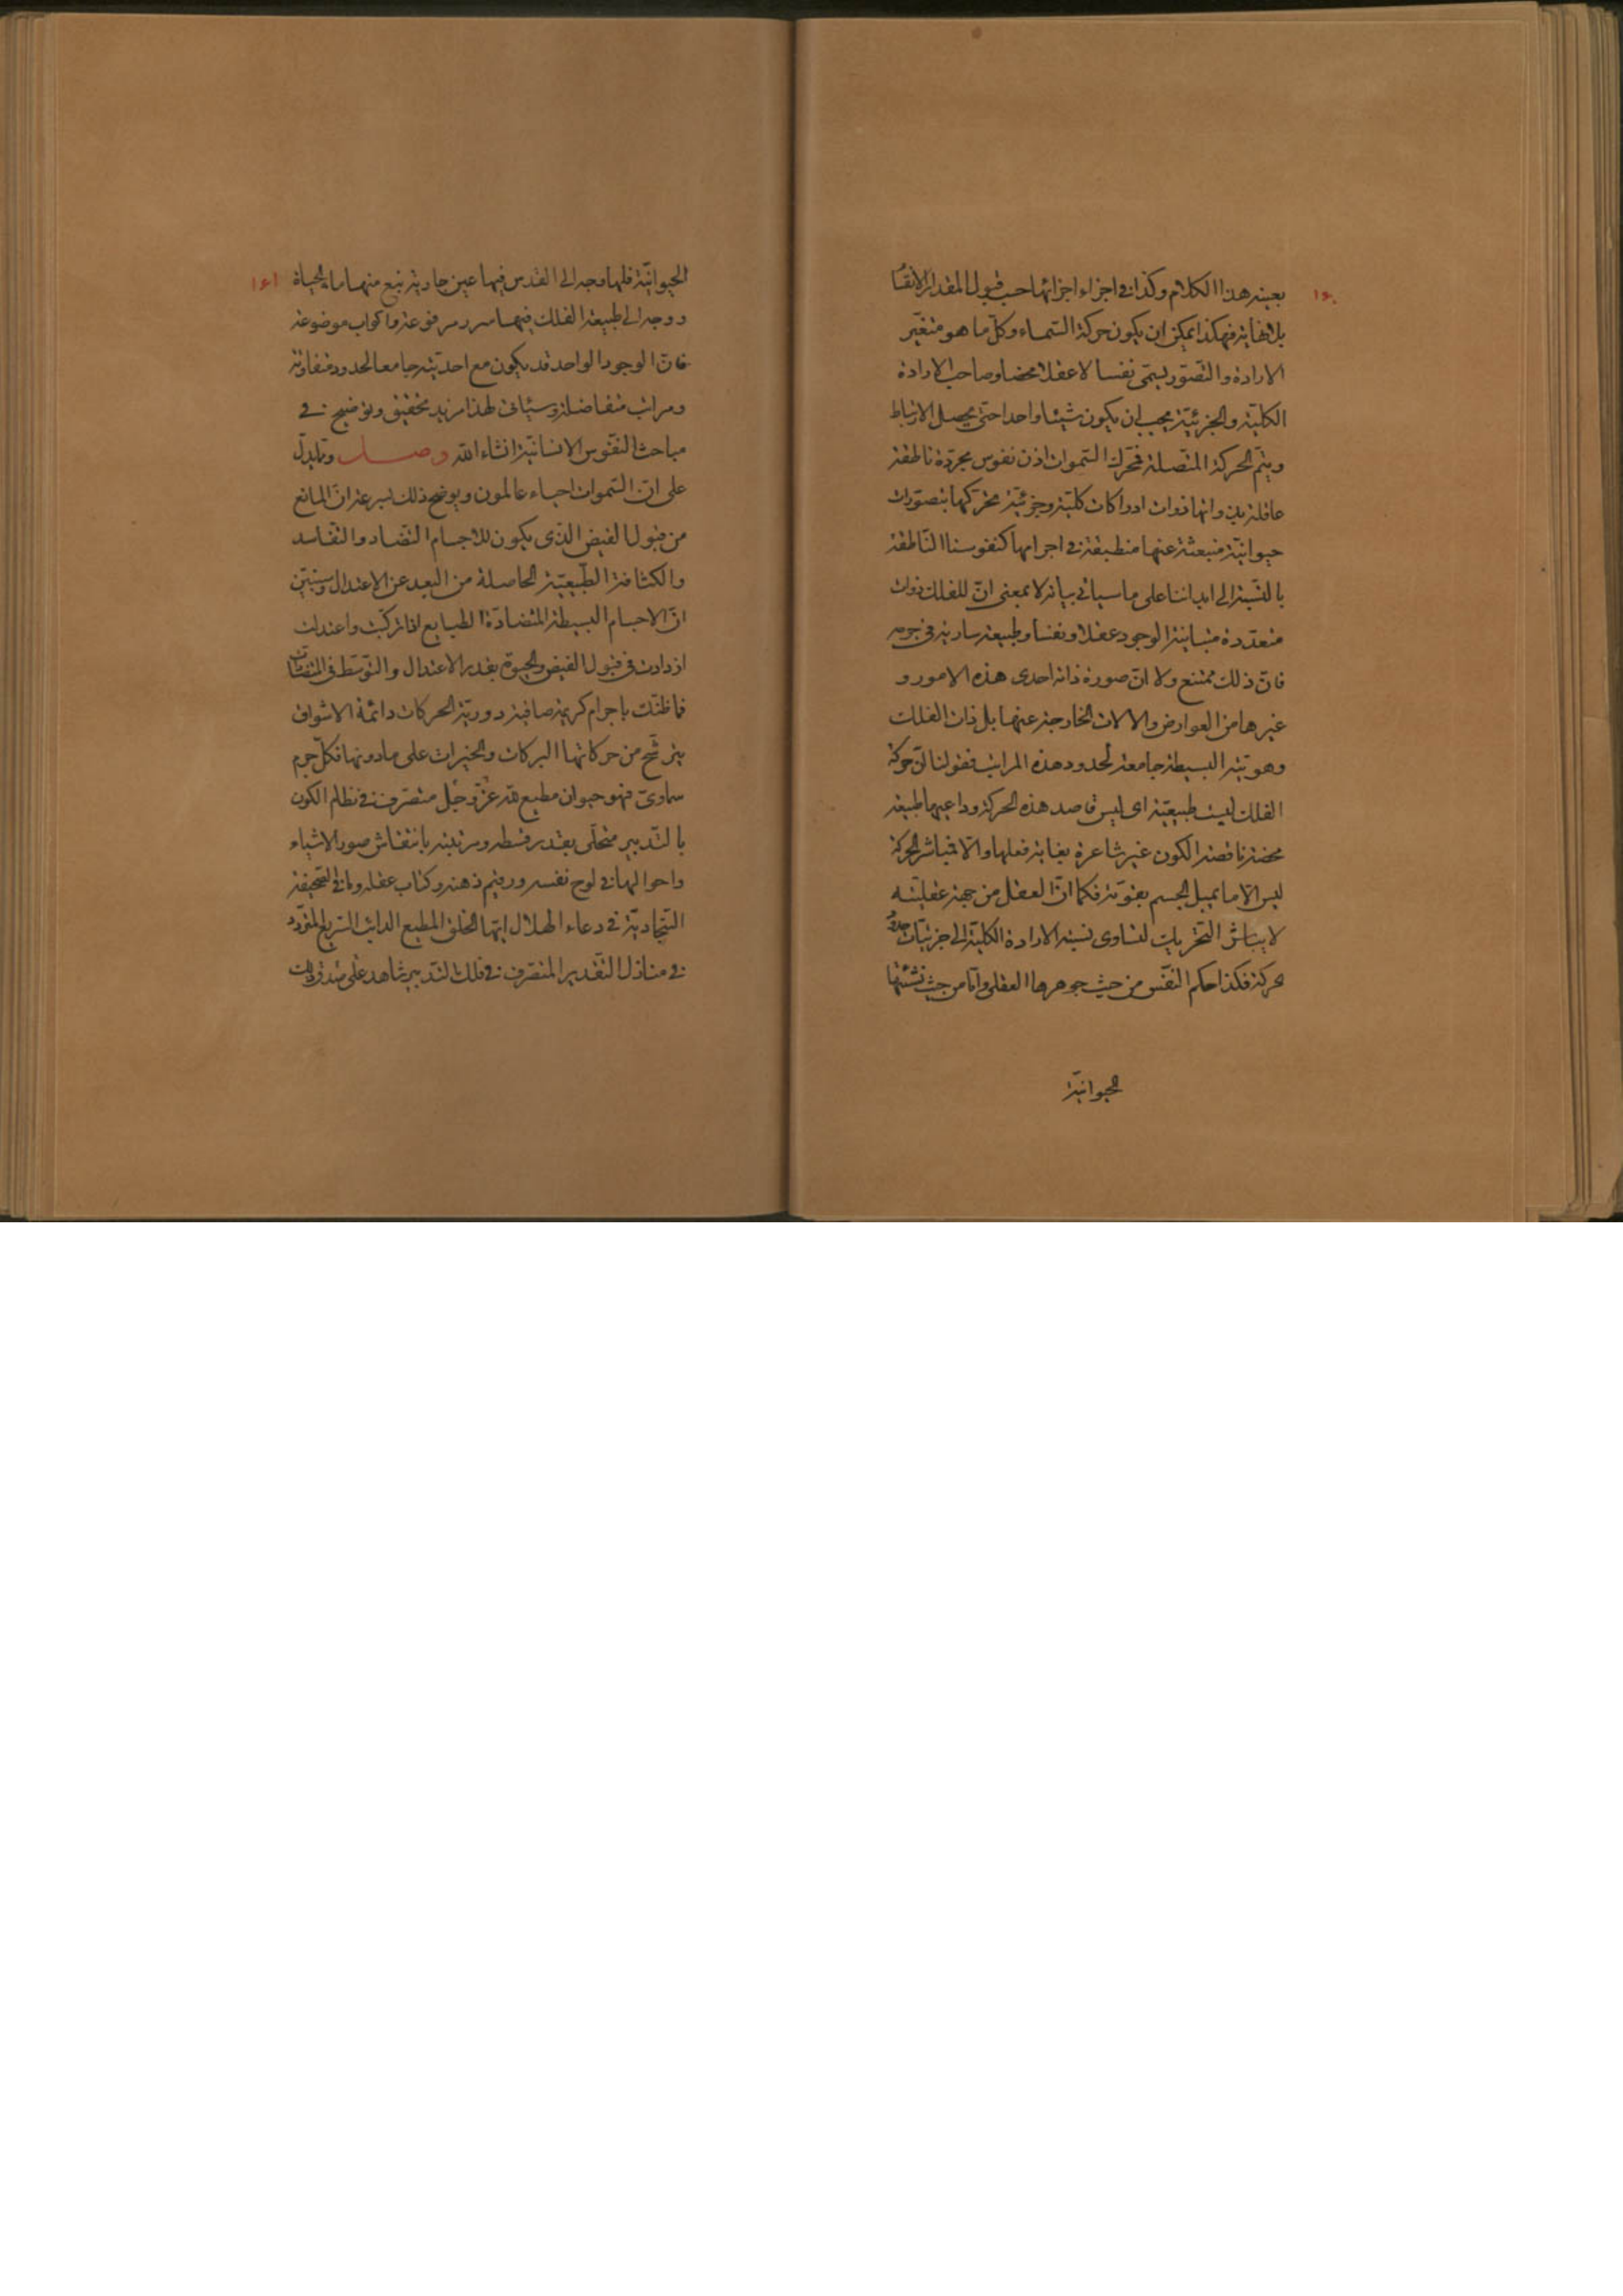 ١۶٠
بعينه هذا الكلام وكذا في اجزاء اجزائها حسب قبول المقدار الانقسا
بلا نهاية فهكذا يمكن ان يكون حركة السّماء وكلّ ما هو متغيّر
الارادة والتصوّر يسمّى نفسا لا عقلا محضا وصاحب الارادة
الكليّة والجزئيّة يجب ان يكون شيئا واحدا حتّى يحصل الارتباط
ويتمّ الحركة المتّصلة فمحرّك السّموات اذن نفوس مجرّدة ناطقة
عاقلة وانّها ذوات ادراكات كليّة وجزئيّة تحرّكها بتصوّرات
حيوانيّة منبعثة عنها منطبقة في اجرامها كنفوسنا النّاطقة
بالنّسبة الى ابداننا على ما سيأتي بيانه لا بمعنى انّ للفلك ذوات
متعدّدة متباينة الوجود عقلا ونفسا وطبيعة سارية في جرمه
فانّ ذلك ممتنع ولا انّ صورة ذاته احدى هذه الامور و
غيرها من العوارض والالات الخارجة عنها بل ذات الفلك
وهويّته البسيطة جامعة لحدود هذه المراتب فقولنا انّ حركة
الفلك ليست طبيعيّة اى ليس قاصد هذه الحركة وداعيها طبيعة
محضة ناقصة الكون غير شاعرة بغاية فعلها والّا فمباشر الحركة
ليس الّا ما يميل الجسم بقوّته فكما انّ العقل من جهة عقليّته
لا يباشر التّحريك لتساوى نسبة الارادة الكليّة الى جزئيّات حدود
حركة فكذا حكم النّفس من حيث جوهرها العقلى وامّا من حيث نشئتها
الحيوانيّة
١۶١
الحيوانيّة فلها وجه الى القدس فيها عين جارية تنبع منها ماء الحياة
ووجه الى طبيعة الفلك فيها سرر مرفوعة واكواب موضوعة
فانّ الوجود الواحد قد يكون مع احديّته جامعا لحدود متفاوتة
ومراتب متفاضلة وسيأتى لهذا مزيد تحقيق وتوضيح في
مباحث النّفوس الانسانيّة انشاء اللّه وصل وممّا يدلّ
على انّ السّموات احياء عالمون ويوضح ذلك بسرعة انّ المانع
من قبول الفيض الّذى يكون للاجسام التضاد والتفاسد
والكثافة الطّبيعيّة الحاصلة من البعد عن الاعتدال وسنبيّن
انّ الاجسام البسيطة المتضادّة الطبايع اذا تركّبت واعتدلت
ازدادت في قبول الفيض والحيوة بقدر الاعتدال والتّوسّط في المتضادّات
فما ظنّك باجرام كريمة صافية دوريّة الحركات دائمة الاشواق
يترشّح من حركاتها البركات والخيرات على ما دونها فكلّ جرم
سماوىّ فهو حيوان مطيع للّه عزّ وجلّ متصرف في نظام الكون
بالتّدبير متحلّى بقدر قسطه ومرتبته بانتقاش صور الاشياء
واحوالها في لوح نفسه ورقيم ذهنه وكتاب عقله وما في الصّحيفة
السّجاديّة في دعاء الهلال ايّها الخلق المطيع الدائب السّريع المتردّد
في منازل التّقدير المتصرف في فلك التّدبير شاهد على صدق ذلك